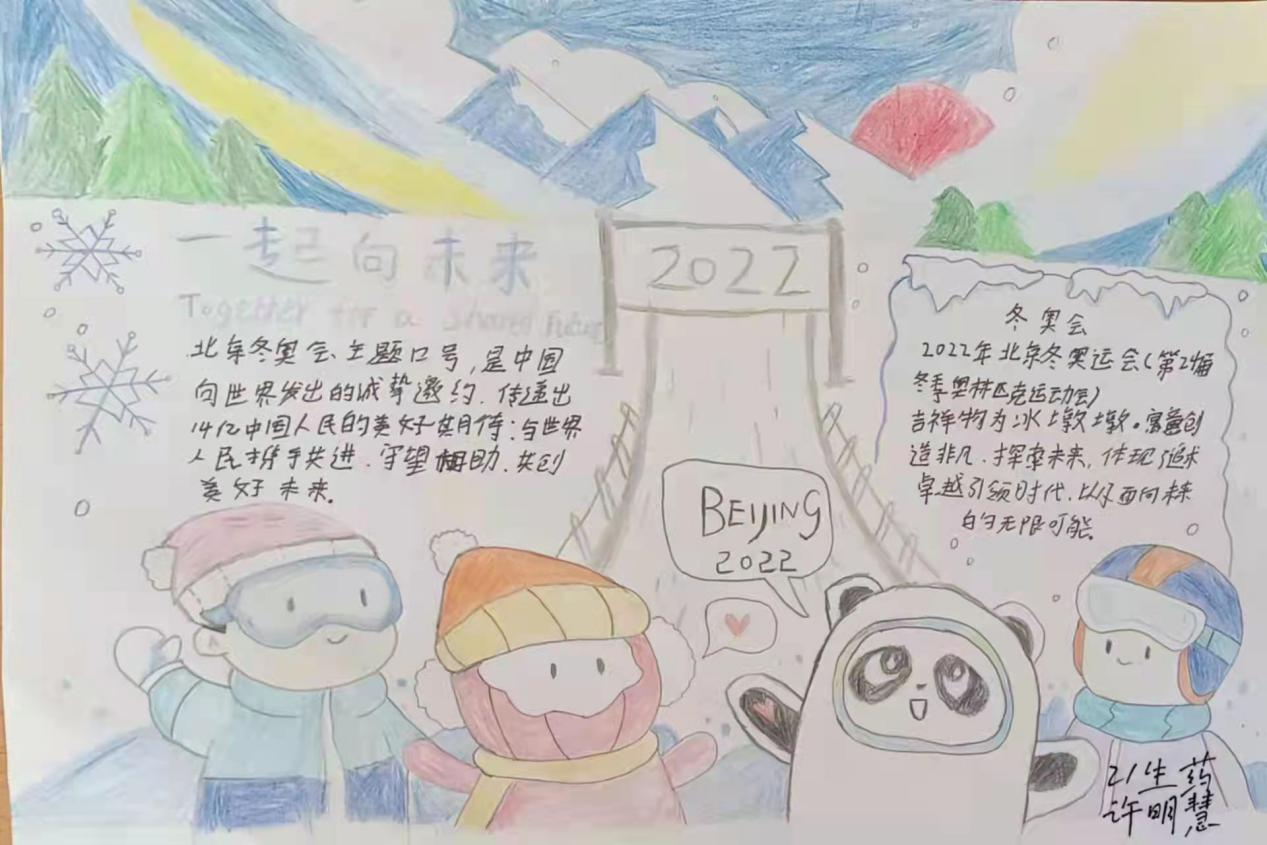 一起向未来
Together for a Shared Future
北京冬奥会主题口号,是中国
向世界发出的诚挚邀约.传递出
14亿中国人民的美好期待:与世界
人民携手共进.守望相助.共创
美好未来.
2022
冬奥会
2022年北京冬奥运会(第24届
冬季奥林匹克运动会)
吉祥物为冰墩墩。寓意创
造非凡.探索未来,体现了追求
卓越引领时代.以及面向未来
的无限可能.
BEIJING
2022
21生药
许明慧